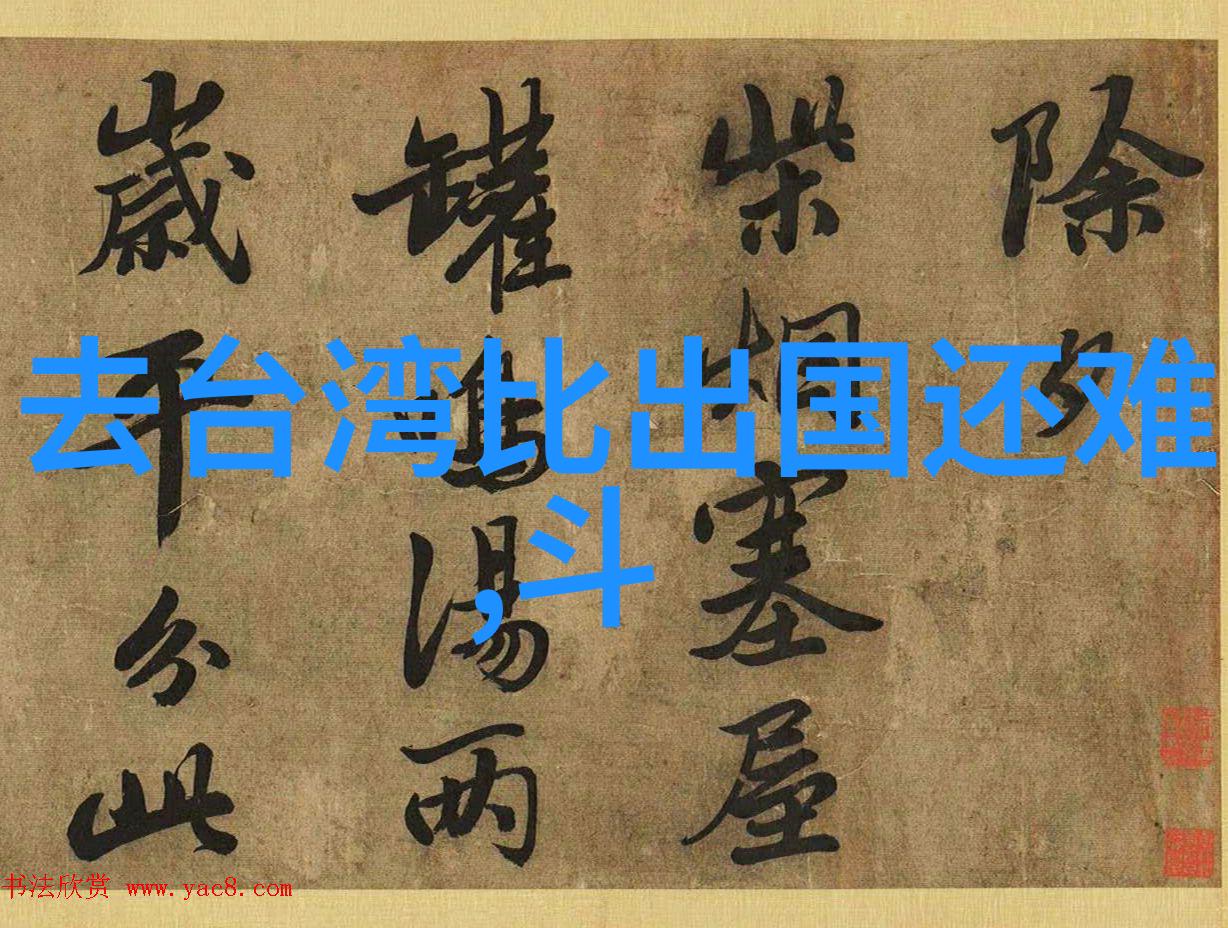 除夕
柴烟塞屋
罐鳴湯两
歲平分此
去台湾比出国还难
,斗
书法欣赏 www.yac8.com